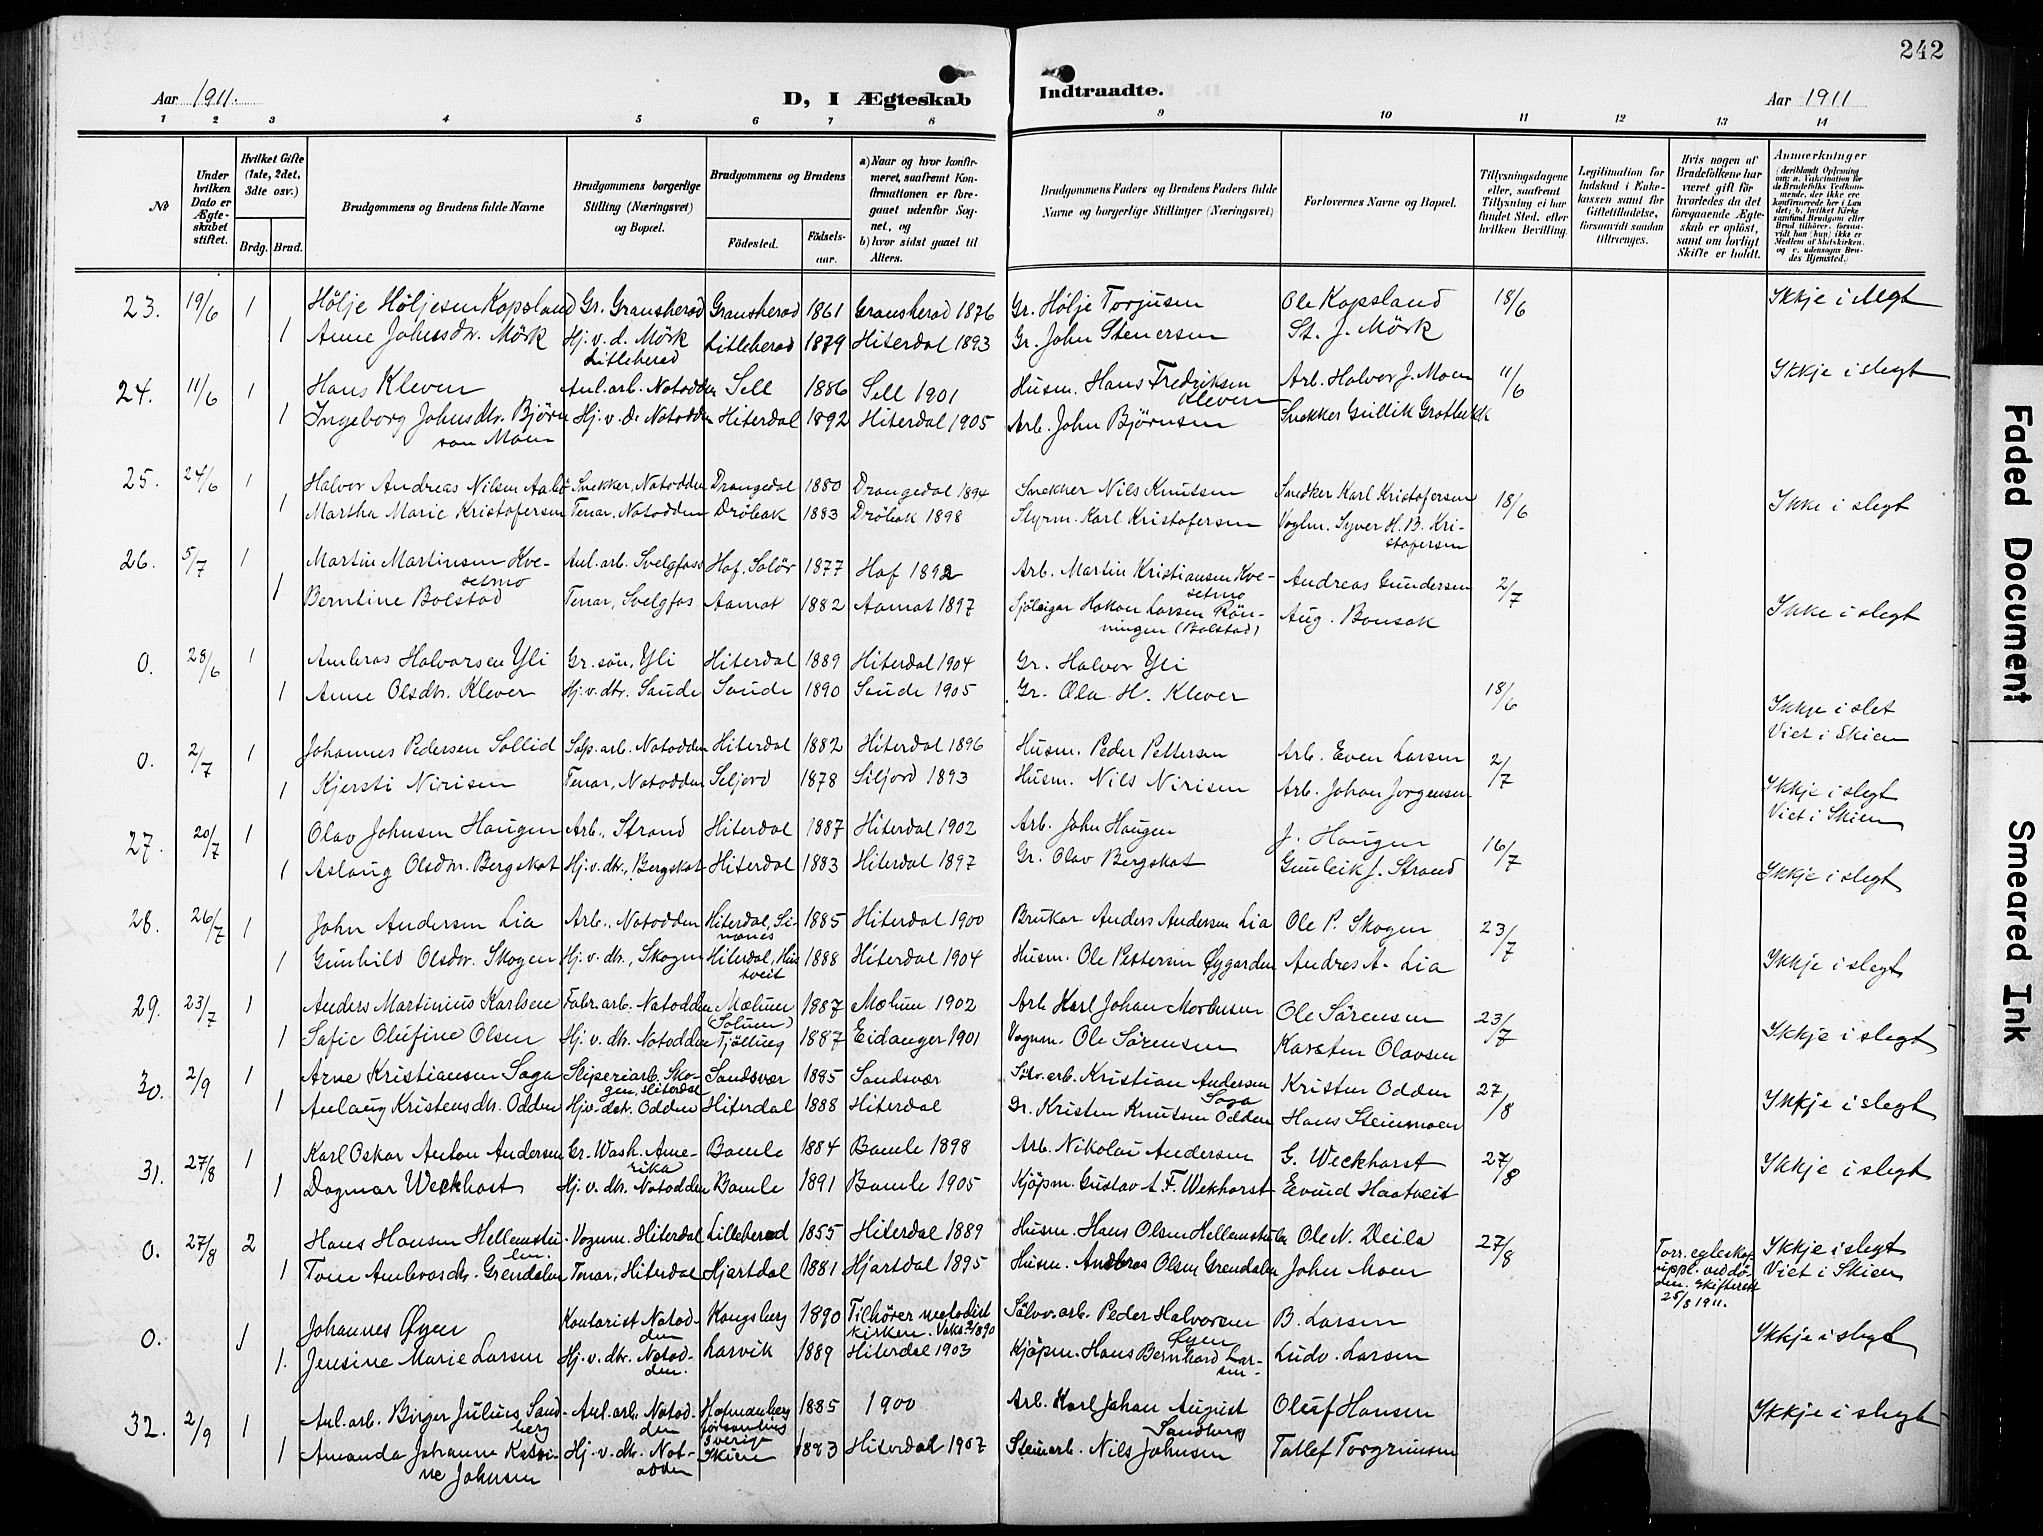 242
Aar 1911.
D, I Ægteskab
Indtraadte.
Aar 1911
1 2 3 4 5 6 7 8 9 10 11 12 13 14
No
Under hvilken Dato er Ægteskabet stiftet.
Hvilket Gifte (1ste, 2det, 3die osv.)
Brdg. Brud.
Brudgommens og Brudens fulde Navne
Brudgommens borgerlige Stilling (Næringsvei) og Bopæl.
Brudgommens og Brudens
Födested.
Födselsaar.
a) Naar og hvor konfirmeret, saafremt Konfirmationen er foregaaet udenfor Sognet, og
b) hvor sidst gaaet til Alters.
Brudgommens Faders og Brudens Faders fulde Navne og borgerlige Stillinger (Næringsvei)
Forlovernes Navne og Bopæl.
Tillysningsdagene eller, saafremt Tillysning ei har fundet Sted, efter hvilken Bevilling.
Legitimation for Indskud i Enkekassen samt for Giftetilladelse, forsaavidt saadan tiltrænges.
Hvis nogen af Brudefolkene har været gift för hvorledes da det foregaaende Ægteskab er oplöst, samt om lovligt Skifte er holdt.
Anmærkninger (deriblandt Oplysning om: a. Vakcination for de Brudefolks Vedkommende, der ikke ere konfirmerede her i Landet; b. hvilket Kirkesamfund Brudgom eller Brud tilhörer, forsaavidt han (hun) ikke er Medlem af Statskirken, og c. udensogns Brudes Hjemsted.)
23. 19/6 1 Hölje Höljesen Kopsland Gr. Gransherad Gransherad 1861 Gransherad 1876 Gr. Hölje Torjusen Ole Kopsland 18/6 Ikkje i slegt
1 Anne Johnsdtr. Mörk Hj. v. d. Mörk Litleherad Litleherad 1879 Hiterdal 1893 Gr. John Stenersen St. J. Mörk
24. 11/6 1 Hans Kleven Anl. arb. Notodden Sell 1886 Sell 1901 Husm. Hans Fredriksen Kleven Arb. Halvor J. Moen 11/6 Ikkje i slegt
1 Ingeborg Johnsdtr. Björnson Moen Hj. v. d. Notodden Hiterdal 1892 Hiterdal 1905 Arb. John Björnsen Snekker Gullik Grotbekk
25. 24/6 1 Halvor Andreas Nilsen Aabö Snekker, Notodden Drangedal 1880 Drangedal 1894 Snekker Nils Knutsen Snedker Karl Kristofersen 18/6 Ikke i slegt
1 Martha Marie Kristofersen Tenar, Notodden Dröbak 1883 Dröbak 1898 Styrm. Karl Kristofersen Vogtm. Syver H. B. Kristofersen
26. 5/7 1 Martin Martinsen Kvesetmo Anl. arb. Svelgfoss Hof, Solör 1877 Hof 1892 Arb. Martin Kristiansen Kvesetmo Andreas Gundersen 2/7
1 Berntine Bolstad Tenar, Svelgfos Aamot 1882 Aamot 1897 Sjöleigar Hakon Larsen Rönningen (Bolstad) Aug. Bonsak Ikke i slegt
0. 28/6 1 Ambros Halvorsen Yli Gr. sön, Yli Hiterdal 1889 Hiterdal 1904 Gr. Halvor Yli
1 Anne Olsdtr. Klever Hj. v. dtr. Saude Saude 1890 Saude 1905 Gr. Ola H. Klever 18/6 Ikkje i slet
Viet i Skien
0. 2/7 1 Johannes Pedersen Sollid Salp. arb. Notodden Hiterdal 1882 Hiterdal 1896 Husm. Peder Pettersen Arb. Even Larsen 2/7
1 Kjersti Nirisen Tenar, Notodden Seljord 1878 Siljord 1893 Husm. Nils Nirisen Arb. Johan Jörgensen Ikkje i slegt
Viet i Skien
27. 20/7 1 Olav Johnsen Haugen Arb., Strand Hiterdal 1887 Hiterdal 1902 Arb. John Haugen J. Haugen 16/7
1 Aslaug Olsdtr. Bergskot Hj. v. dtr., Bergskot Hiterdal 1883 Hiterdal 1897 Gr. Olav Bergskot Gunleik J. Strand Ikkje i slegt
28. 26/7 1 John Andersen Lia Arb., Notodden Hiterdal, Simones 1885 Hiterdal 1900 Brukar Anders Andersen Lia Ole P. Skogen 23/7
1 Gunhild Olsdtr. Skogen Hj. v. dtr., Skogen Hiterdal, Hustveit 1888 Hiterdal 1904 Husm. Ole Pettersen Öygarden Andres A. Lia Ikkje i slegt
29. 23/7 1 Anders Martinius Karlsen Fabr. arb. Notodden Mælum (Solum) 1887 Mælum 1902 Arb Karl Johan Mortensen Ole Sörensen 23/7
1 Sofie Olufine Olsen Hj. v. dtr. Notodden Tjölling 1887 Eidanger 1901 Vognm. Ole Sörensen Karsten Olavsen Ikkje i slegt
30. 2/9 1 Arne Kristiansen Saga Sliperiarb. Skogen, Hiterdal Sandsvær 1885 Sandsvær Sölv. arb. Kristian Andersen Saga Kristen Odden 27/8
1 Anlaug Kristensdtr. Odden Hj. v. dtr. Odden Hiterdal 1888 Hiterdal Gr. Kristen Knutsen Odden Hans Steinmoen Ikkje i slegt
31. 27/8 1 Karl Oskar Anton Andersen Gr. Wash. Amerika Bamle 1884 Bamle 1898 Arb. Nikolai Andersen G. Weckhorst 27/8 Ikkje i slegt
1 Dagmar Weckhost Hj. v. dtr. Notodden Bamle 1891 Bamle 1905 Kjöpm. Gustav A. F. Wekhorst Eivind Haatveit
0. 27/8 2 Hans Hansen Hellemstulen. Vognm. Hiterdal Lilleherad 1855 Hiterdal 1889 Husm. Hans Olsen Hellemstulen Ole N. Deila 27/8 Forr. egteskap uppl. ved döden. Skifteratt 25/8 1911. Ikkje i slegt
1 Tone Ambrosdtr. Grendalen Tenar, Hiterdal Hjartdal 1881 Hjartdal 1895 Husm. Ambros Olsen Grendalen John Moen Viet i Skien
0. 1 Johannes Öyen Kontorist Notodden Kongsberg 1890 Tilhörer metodistkirken. Vaks. 2/8 90 Sölvv. arb. Peder Halvorsen Öyen B. Larsen
1. Jensine Marie Larsen Hj. v. dtr. Notodden. Larvik 1889 Hiterdal 1903 Kjöpm. Hans Bernhard Larsen. Ludv. Larsen Ikkje i slegt
32. 2/9 1 Anl. arb. Birger Julius Sandberg Anl. arb. Notodden församling Sverige 1885 1900 Arb. Karl Johan August Sandberg Oluf Hansen Ikkje i slegt
1 Amanda Johanne Johnsen Hj. v. dtr. Notodden Skien 1883 Hiterdal 1907 Steinarb. Nils Johnsen Tallef Torgrimsen
Faded Document
Smeared Ink